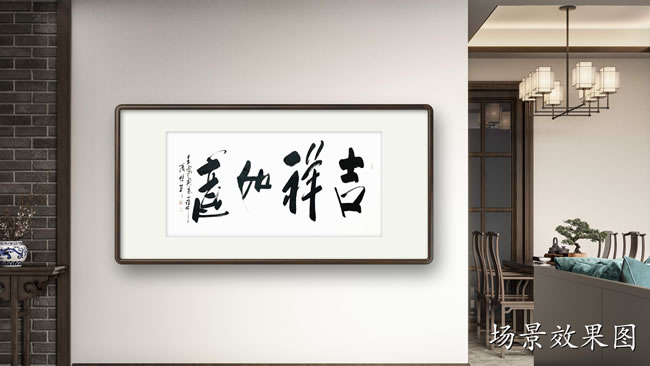 吉祥如意
场景效果图